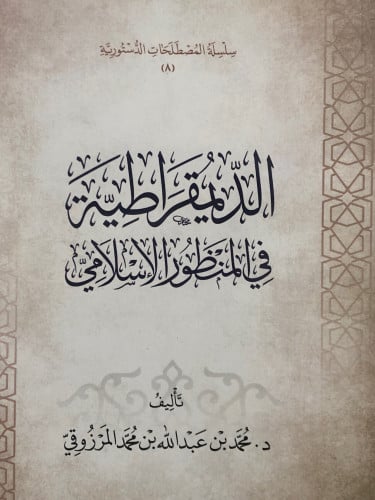 سِلْسِلَةُ المُصْطَلَحَاتِ الدُّسْتُورِيَّةِ
(٨)
الدِّيمُقرَاطِيَّة
فِي المَنْظُورِ الإِسْلَامِيّ
تَأْلِيفُ
د. مُحَمَّد بن عَبدالله بن مُحَمَّد المَرْزُوقِيّ